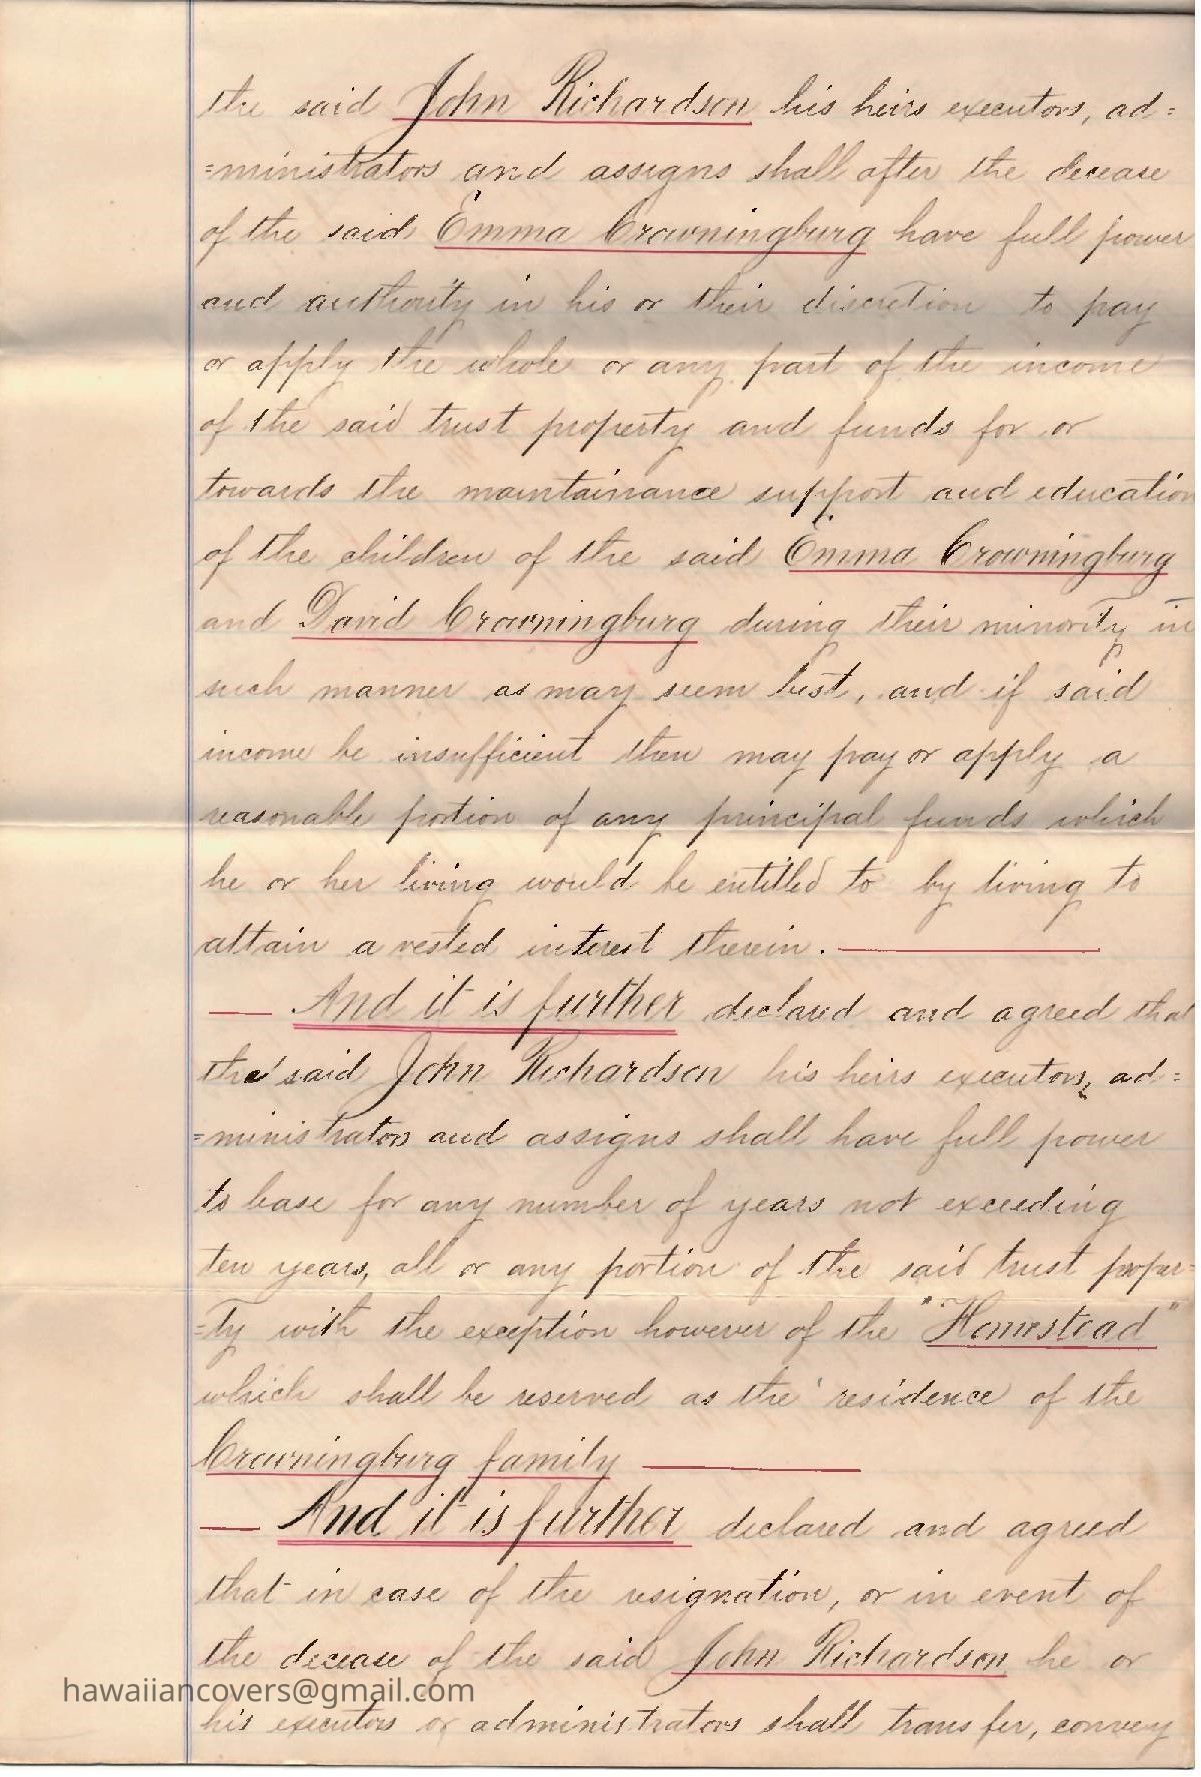 the said John Richardson his heirs executors, ad=
=ministrators and assigns shall after the decease
of the said Emma Crowningburg have full power
and authority in his or their discretion to pay
or apply the whole or any part of the income
of the said trust property and funds for or
towards the maintainance support and education
of the children of the said Emma Crowningburg
and David Crowningburg during their minority in
such manner as may seem best, and if said
income be insufficient then may pay or apply a
reasonable portion of any principal funds which
he or her living would be entitled to by living to
attain a vested interest therein.
And it is further declared and agreed that
the said John Richardson his heirs executors, ad=
=ministrators and assigns shall have full power
to lease for any number of years not exceeding
ten years, all or any portion of the said trust proper=
=ty with the exception however of the "Homestead"
which shall be reserved as the residence of the
Crowningburg family
And it is further declared and agreed
that in case of the resignation, or in event of
the decease of the said John Richardson he or
hawaiiancovers@gmail.com
his executors or administrators shall transfer, convey